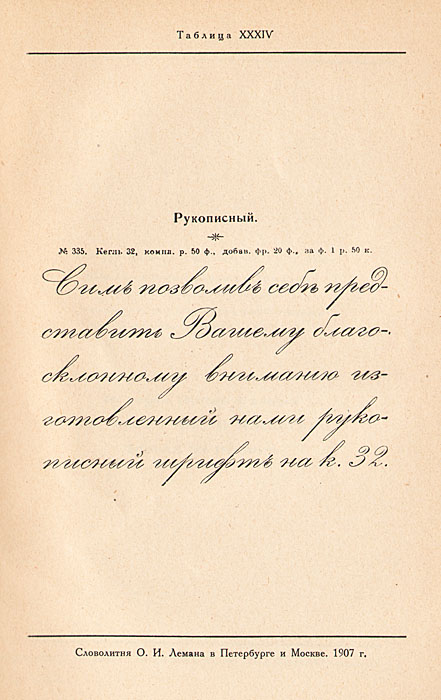 Таблица XXXIV
Рукописный.
№ 335. Кегль 32, компл. р. 50 ф., добав. фр. 20 ф., за ф. 1 р. 50 к.
Симъ позволивъ себѣ пред-
ставить Вашему благо-
склонному вниманію из-
готовленный нами руко-
писный шрифтъ на к. 32.
Словолитня О. И. Лемана в Петербурге и Москве. 1907 г.